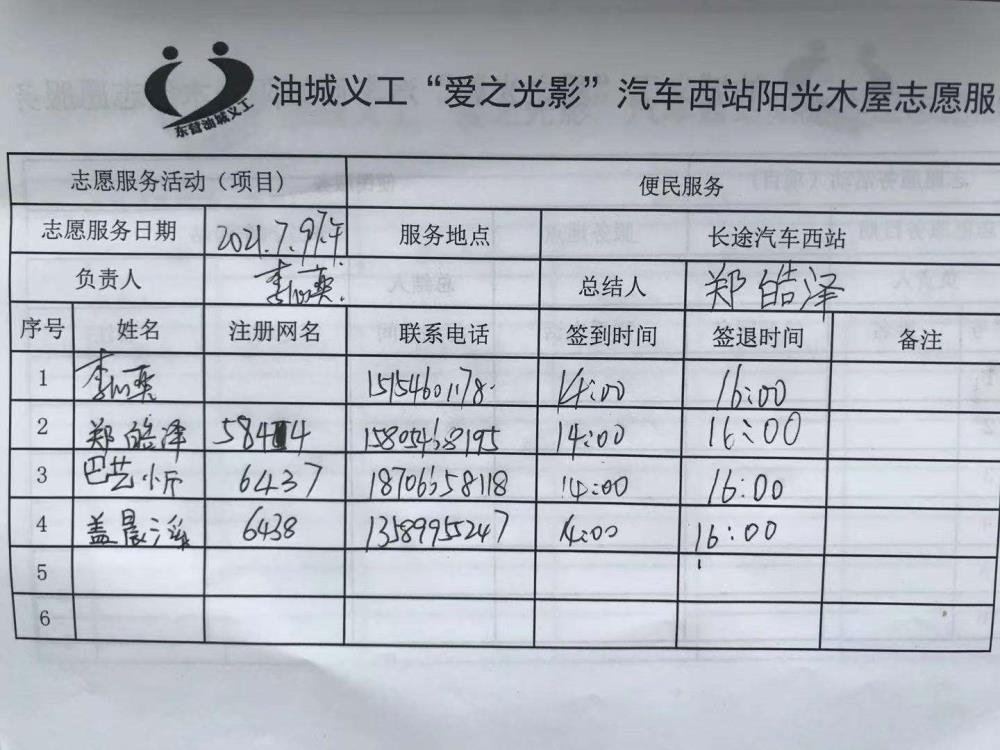 东营油城义工
油城义工“爱之光影”汽车西站阳光木屋志愿服
志愿服务活动（项目） 便民服务
志愿服务日期 2021.7.9下午 服务地点 长途汽车西站
负责人 李 总结人 郑皓泽
序号 姓名 注册网名 联系电话 签到时间 签退时间 备注
1 李 15154601178 14:00 16:00
2 郑皓泽 15805468195 14:00 16:00
3 巴芸 6437 14:00 16:00
4 盖晨瑶 6438 13589955247 14:00 16:00
5
6